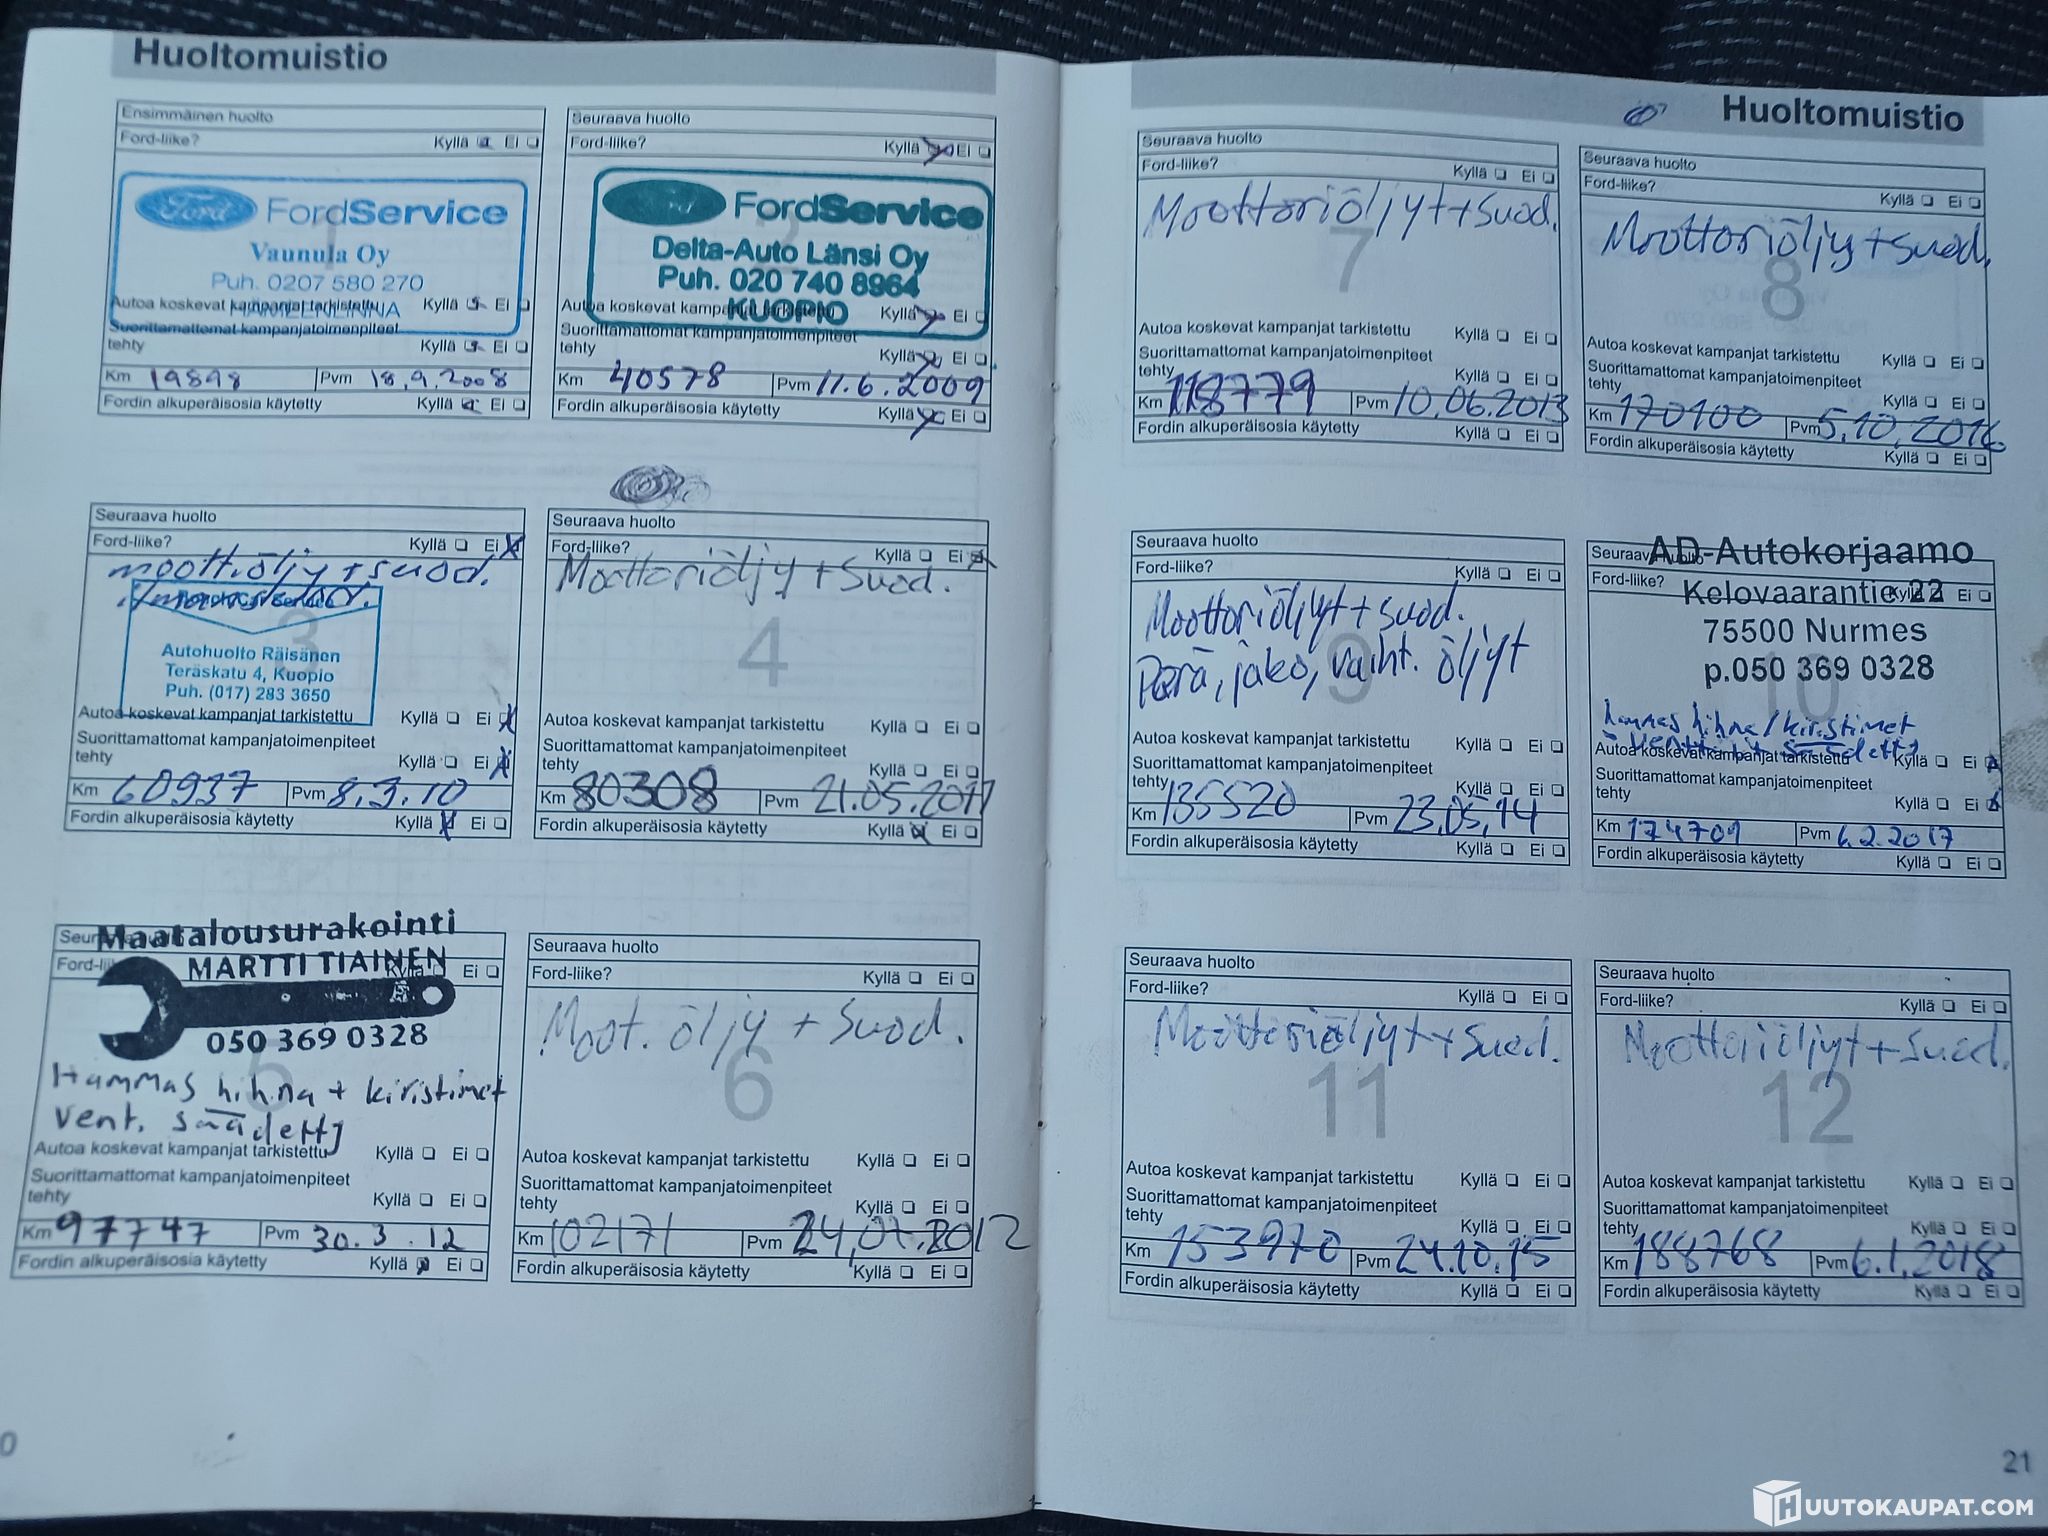 Huoltomuistio
Ensimmäinen huolto
Ford-liike? Kyllä Ei
Ford FordService
Vaunula Oy
Puh. 0207 580 270
HÄMEENLINNA
Autoa koskevat kampanjat tarkistettu Kyllä Ei
Suorittamattomat kampanjatoimenpiteet
tehty Kyllä Ei
Km 19898 Pvm 18.9.2008
Fordin alkuperäisosia käytetty Kyllä Ei
Seuraava huolto
Ford-liike? Kyllä Ei
Ford FordService
Delta-Auto Länsi Oy
Puh. 020 740 8964
KUOPIO
2
Autoa koskevat kampanjat tarkistettu Kyllä Ei
Suorittamattomat kampanjatoimenpiteet
tehty Kyllä Ei
Km 40578 Pvm 11.6.2009
Fordin alkuperäisosia käytetty Kyllä Ei
Seuraava huolto
Ford-liike? Kyllä Ei
moott.öljy + suod.
3
Autohuolto Räisänen
Teräskatu 4, Kuopio
Puh. (017) 283 3650
Autoa koskevat kampanjat tarkistettu Kyllä Ei
Suorittamattomat kampanjatoimenpiteet
tehty Kyllä Ei
Km 60937 Pvm 8.3.10
Fordin alkuperäisosia käytetty Kyllä Ei
Seuraava huolto
Ford-liike? Kyllä Ei
Moottoriöljy + Suod.
4
Autoa koskevat kampanjat tarkistettu Kyllä Ei
Suorittamattomat kampanjatoimenpiteet
tehty Kyllä Ei
Km 80308 Pvm 21.05.2011
Fordin alkuperäisosia käytetty Kyllä Ei
Maatalousurakointi
MARTTI TIAINEN
Kyllä Ei
050 369 0328
5
Hammas hihna + kiristimet
vent. säädetty
Autoa koskevat kampanjat tarkistettu Kyllä Ei
Suorittamattomat kampanjatoimenpiteet
tehty Kyllä Ei
Km 97747 Pvm 30.3.12
Fordin alkuperäisosia käytetty Kyllä Ei
Seuraava huolto
Ford-liike? Kyllä Ei
Moot. öljy + Suod.
6
Autoa koskevat kampanjat tarkistettu Kyllä Ei
Suorittamattomat kampanjatoimenpiteet
tehty Kyllä Ei
Km 102171 Pvm 24.07.2012
Fordin alkuperäisosia käytetty Kyllä Ei
Huoltomuistio
Seuraava huolto
Ford-liike? Kyllä Ei
Moottoriöljyt + Suod.
7
Autoa koskevat kampanjat tarkistettu Kyllä Ei
Suorittamattomat kampanjatoimenpiteet
tehty Kyllä Ei
Km 118779 Pvm 10.06.2013
Fordin alkuperäisosia käytetty Kyllä Ei
Seuraava huolto
Ford-liike? Kyllä Ei
Moottoriöljy + suod.
8
Autoa koskevat kampanjat tarkistettu Kyllä Ei
Suorittamattomat kampanjatoimenpiteet
tehty Kyllä Ei
Km 170100 Pvm 5.10.2016
Fordin alkuperäisosia käytetty Kyllä Ei
Seuraava huolto
Ford-liike? Kyllä Ei
Moottoriöljyt + suod.
Perä, jako, vaiht. öljyt
9
Autoa koskevat kampanjat tarkistettu Kyllä Ei
Suorittamattomat kampanjatoimenpiteet
tehty Kyllä Ei
Km 135520 Pvm 23.05.14
Fordin alkuperäisosia käytetty Kyllä Ei
Seuraava huolto
AD-Autokorjaamo
Ford-liike? Kyllä Ei
Kelovaarantie 22
75500 Nurmes
p.050 369 0328
10
hammas hihna / kiristimet
venttiilit säädetty
Autoa koskevat kampanjat tarkistettu Kyllä Ei
Suorittamattomat kampanjatoimenpiteet
tehty Kyllä Ei
Km 174709 Pvm 6.2.2017
Fordin alkuperäisosia käytetty Kyllä Ei
Seuraava huolto
Ford-liike? Kyllä Ei
Moottoriöljyt + Suod.
11
Autoa koskevat kampanjat tarkistettu Kyllä Ei
Suorittamattomat kampanjatoimenpiteet
tehty Kyllä Ei
Km 153970 Pvm 24.10.15
Fordin alkuperäisosia käytetty Kyllä Ei
Seuraava huolto
Ford-liike? Kyllä Ei
Moottoriöljyt + Suod.
12
Autoa koskevat kampanjat tarkistettu Kyllä Ei
Suorittamattomat kampanjatoimenpiteet
tehty Kyllä Ei
Km 188768 Pvm 6.1.2018
Fordin alkuperäisosia käytetty Kyllä Ei
21
HUUTOKAUPAT.COM